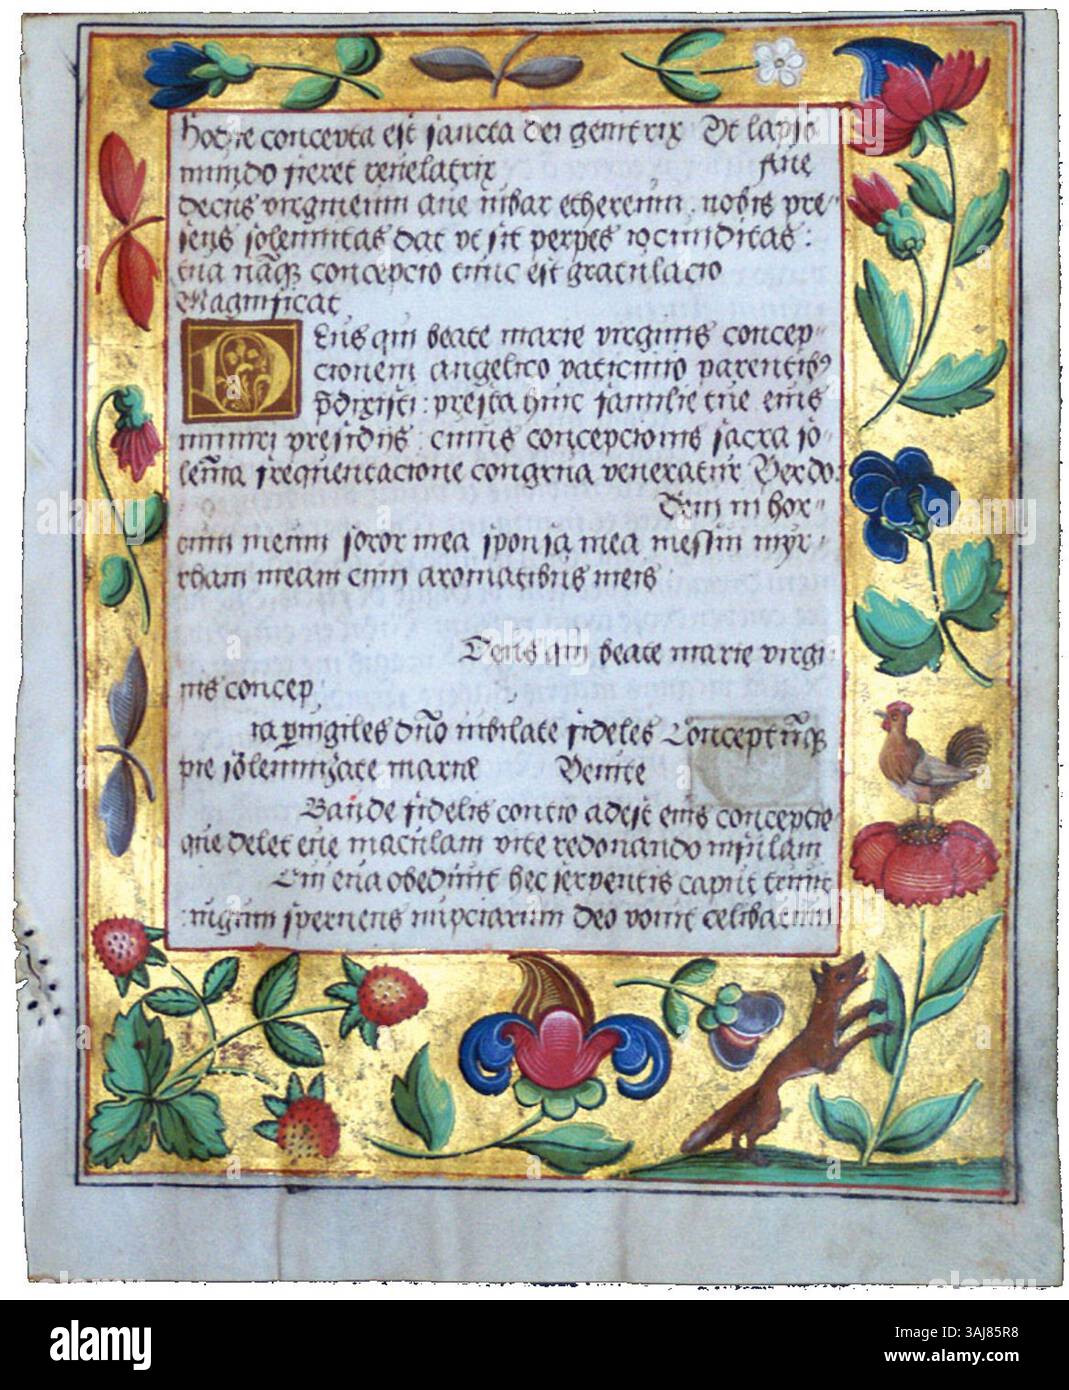 hodie concepta est sancta dei genitrix Ut lapso
mundo fieret revelatrix Ave
decus virgineum ave iubar ethereum . nobis pre-
sens solemnitas dat ut sit perpes iocunditas :
tua nāqꝫ concepcio tunc est gratulacio
Magnificat
Deus qui beate marie virginis concep-
cionem angelico vaticinio parentibꝰ
p̄dixisti : presta huic familie tue eius
muniri presidiis : cuius concepcionis sacra so-
lēnia frequentacione congrua veneratur Per do.
Veni in hor-
tum meum soror mea sponsa mea messui myr-
rham meam cum aromatibus meis
Deus qui beate marie virgi
nis concep.
ra ꝑvigiles dn̄o iubilate fideles Conceptūqꝫ
pie solemnizate marie Venite
Gaude fidelis contio adest eius conceptio
que delet eve maculam vite redonando
Cui eva obedivit hec serpentis caput trivit
iugum spernens nupciarum deo vovit celibatum
alamy
Image ID: 3AJ85R8
www.alamy.com